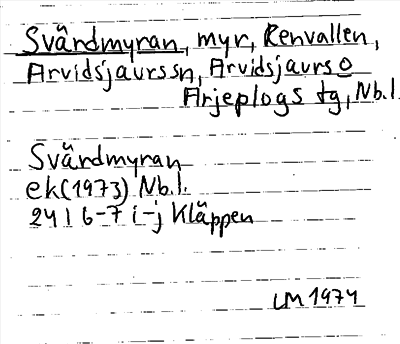 Svärdmyran, myr, Renvallen,
Arvidsjaurssn, Arvidsjaurs o
Arjeplogs tg, Nb.l.
Svärdmyran
ek (1973) Nb.l.
24 I 6-7 i-j Kläppen
LM 1974